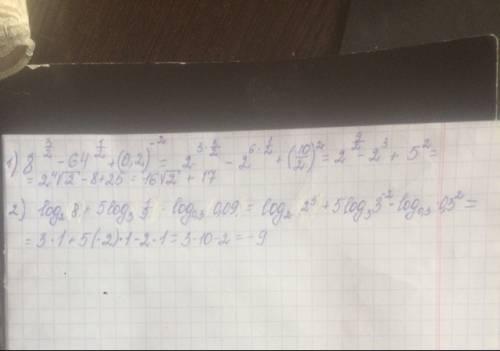 1) 8^{3/2} - 64^{1/2} + (0,2)^{-2} = 2^{3·3/2} - 2^{6·1/2} + (10/2)^2 = 2^{9/2} - 2^3 + 5^2 =
= 2^4√2 - 8 + 25 = 16√2 + 17
2) log_2 8 + 5log_3 1/9 - log_{0,3} 0,09 = log_2 2^3 + 5log_3 3^{-2} - log_{0,3} 0,3^2 =
= 3·1 + 5(-2)·1 - 2·1 = 3-10-2 = -9